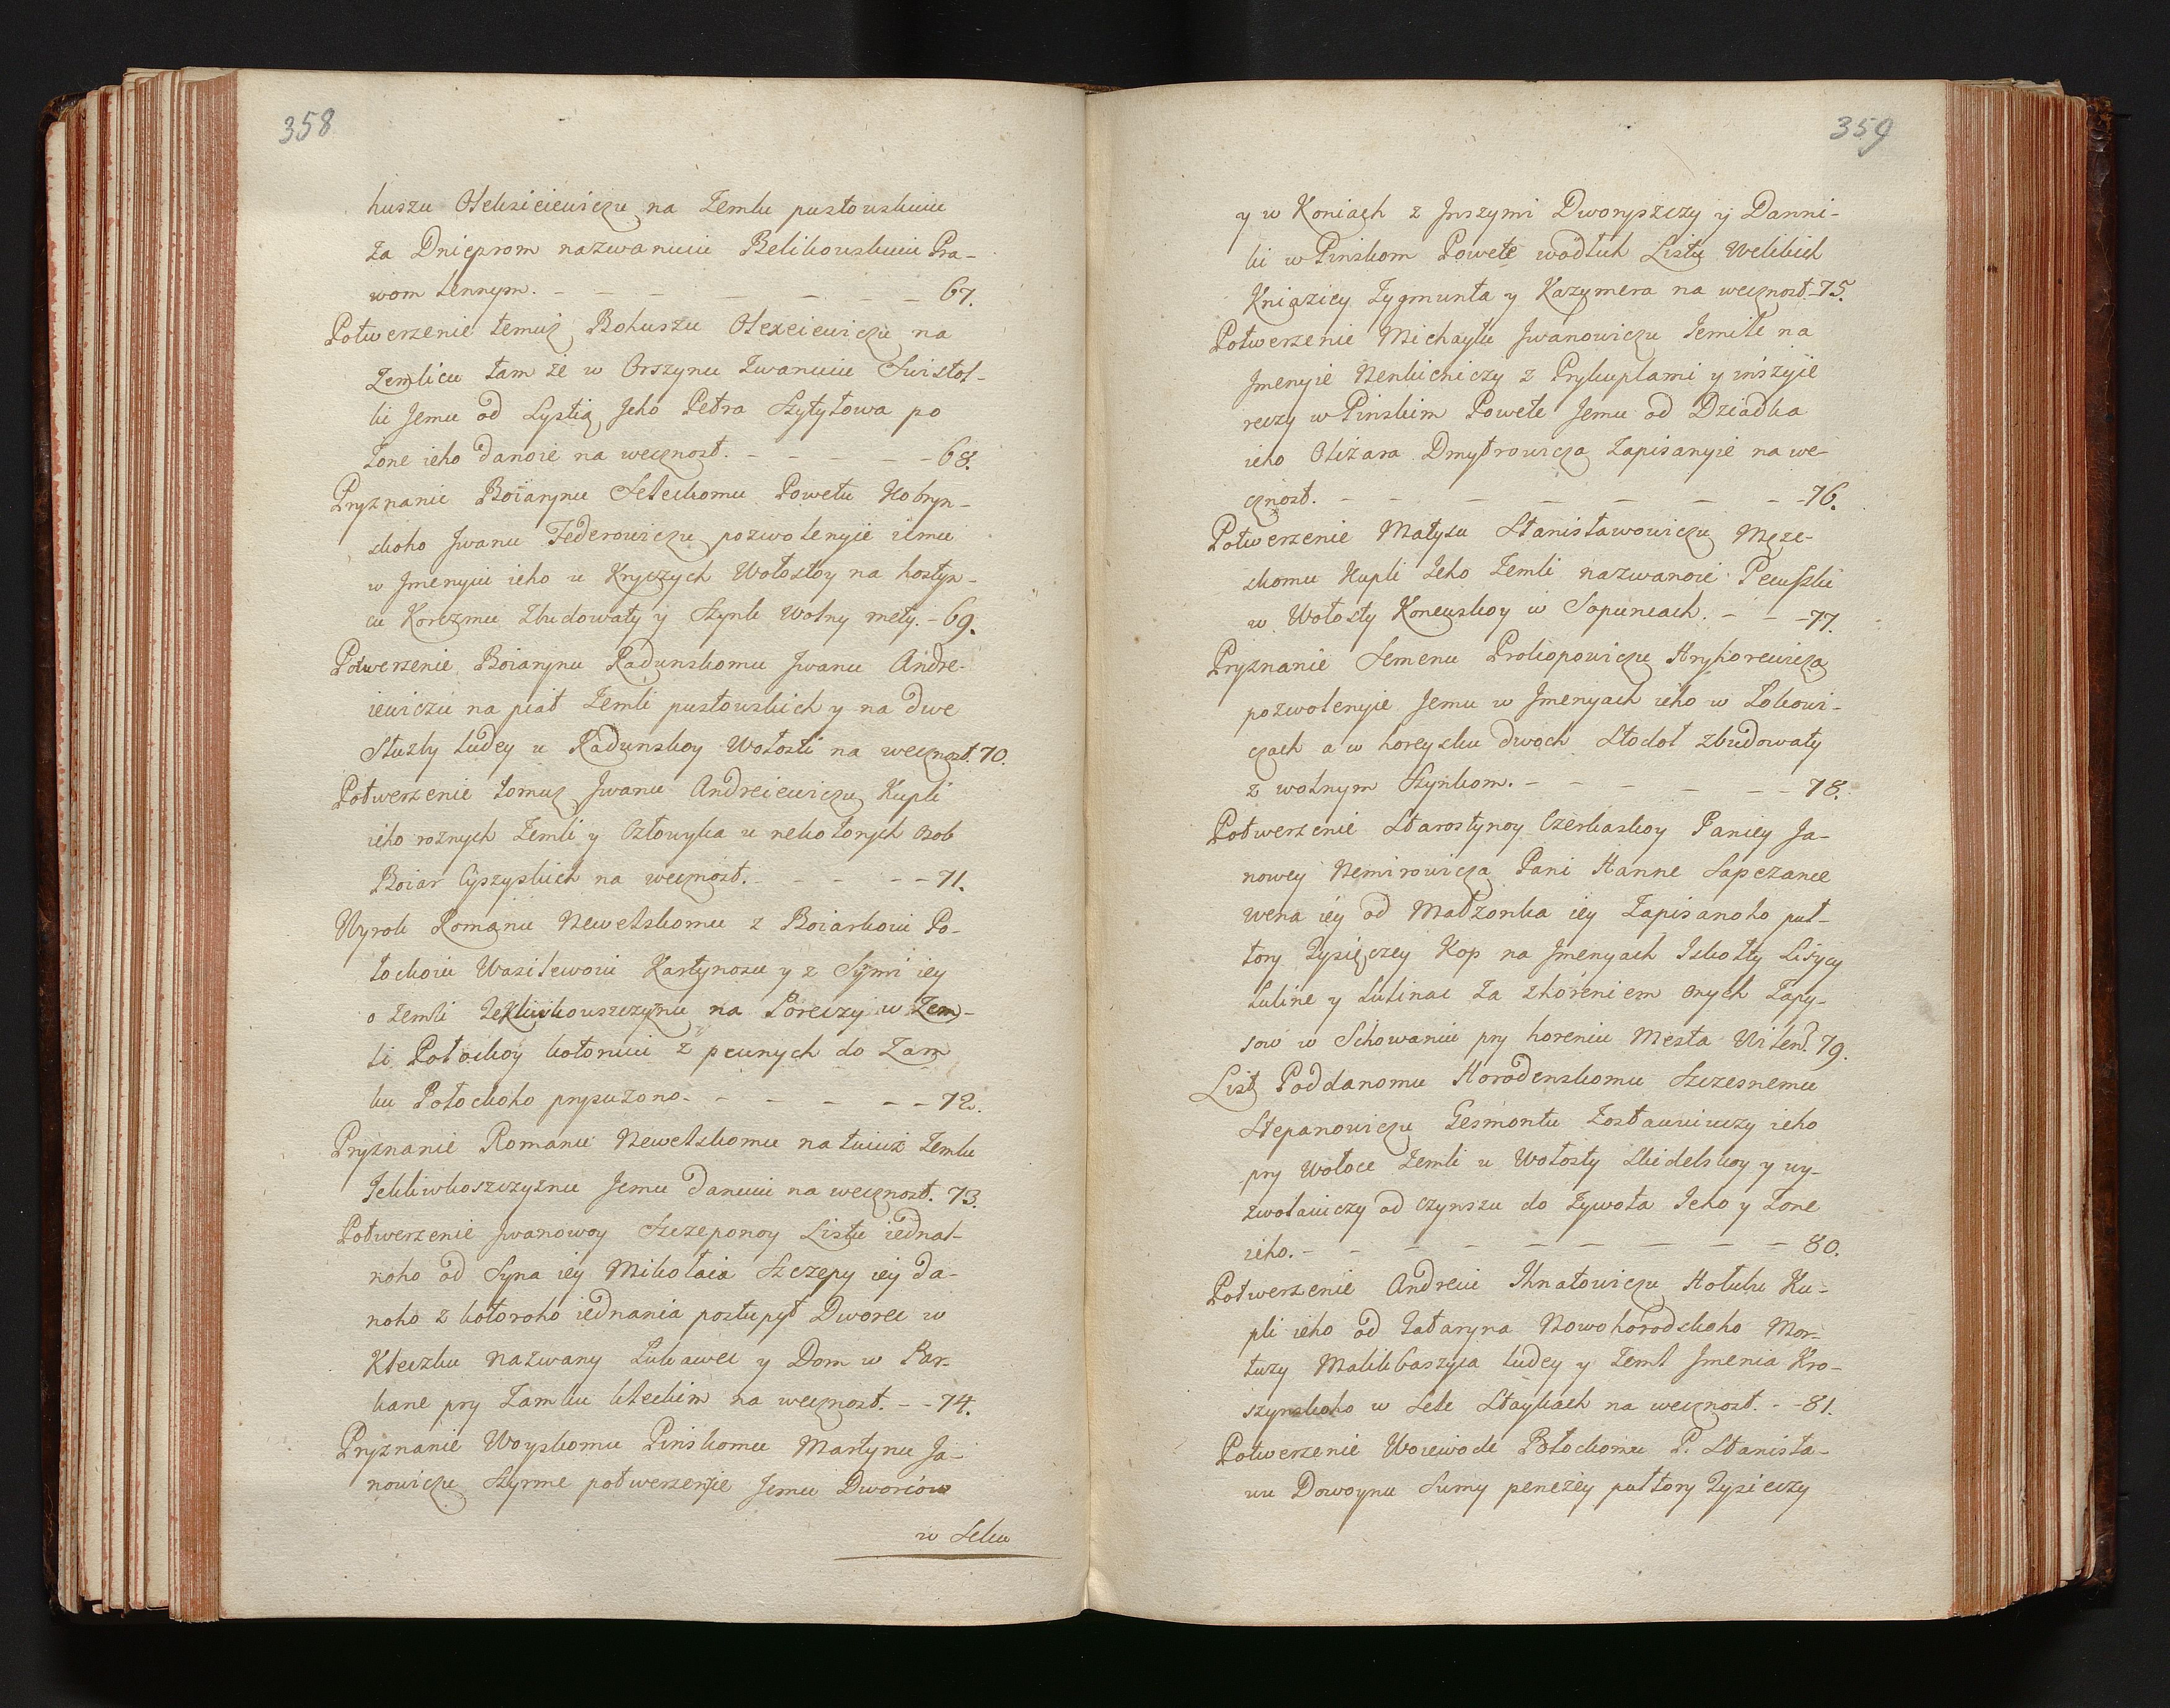 358
huszu Olekseiewiczu na Zemlu pustowskuiu
za Dnieprom nazwanuiu Belikowskuiu Pra-
wom Lennym. — — — — — — 67.
Potwerzenie temuż Bohuszu Olexeiewiczu na
Zemlicu tam że w Orszynu zwanuiu Swistoł-
ki Jemu od Jeho Petra Szytytowa po
żone ieho danoie na wecznost. — — — — 68.
Pryznanie Boiarynu Seleckomu Powetu Kobryn-
skoho Jwanu Federowiczu pozwolenyie iemu
w Jmenyiu ieho u Kryczych Wołostoy na hostyn-
cu Korczmu zbudowaty y Szynk wolny mety. - 69.
Potwerzenie Boiarynu Radunskomu Jwanu Andre-
iewiczu na piat Zemli pustowskich y na dwe
Służby ludey u Radunskoy Wołosti na wecznost. 70.
Potwerzenie tomuż Jwanu Andreiewiczu Kupli
ieho roznych Zemli y Człowyka u nekotorych osob
Boiar Cyszyskich na wecznost. — — — — 71.
Wyrok Romanu Newelskomu z Boiarkoiu Po-
łockoiu Wasilewoiu Kartynosu y z Synmi iey
o Zemli Zekliwkouszczyznu na Poreczy w Zem-
li Połockoy kotoruiu z pewnych do Zam
ku Połockoho prysużono. — — — — 72.
Pryznanie Romanu Newelskomu na tuiuż Zemlu
Jekliwkoszczyznu Jemu danuiu na wecznost. 73.
Potwerzenie Jwanowoy Szczeponoy Listu iednal-
noho od Syna iey Mikołaia Szczepy iey da-
noho z kotoroho iednania postupył Dworec w
Klecku nazwany Lukawec y Dom w Par-
kane pry Zamku kleckim na wecznost. — - 74.
Pryznanie Woyskomu Pinskomu Martynu Ja-
nowiczu Szyrme potwerzenyie Jemu Dworcow
w Selcu
359
y w Koniach z Jnszymi Dworyszczy y Danni-
ki w Pinskom Powete wodłuh Listu Welikich
Kniaziey Zygmunta y Kazymera na wecznost. - 75.
Potwerzenie Michayłu Jwanowiczu Jemile na
Jmenyie Nenkieniczy z Prykuplami y inszyie
reczy w Pinskim Powete Jemu od Dziadka
ieho Oliżara Dmytrowicza Zapisanyie na we-
cznost. — — — — — — — 76.
Potwerzenie Matysu Stanisławowiczu Męże-
skomu Kupli Jeho Zemli nazwanoie Peuszki
w Wołosty Koneuskoy w Sopuncach. — — — 77.
Pryznanie Semenu Prokopowiczu Hryhorewicza
pozwolenyie Jemu w Jmenyach ieho w Łokowi-
czach a w horeysku dwoch Stodoł zbudowaty
z wolnym Szynkom. — — — — — 78.
Potwerzenie Starostynoy Czerkaskoy Paniey Ja-
nowey Nemirowicza Pani Hanne Sapezance
wena iey od Małżonka iey Zapisanoho puł-
tory Tysięczey Kop na Jmenyach Iskołty Lisycy
Luline y Lulinac za zhoreniem onych Zapy-
sow w Schowaniu pry horeniu Mesta Wilen. 79.
List Poddanomu Horodenskomu Szczesnemu
Stepanowiczu Gesmontu Zostawuiuczy ieho
pry Wołoce Zemli u Wołosty Skidelskoy y wy-
zwolaiuczy od Czynszu do Żywota Jeho y żone
ieho. — — — — — — — — 80.
Potwerzenie Andreiu Ihnatowiczu Hołubu Ku-
pli ieho od Tataryna Nowohorodskoho Mor-
tuzy Malikbaszyca ludey y Zeml Jmenia Kro-
szynskoho w Sele Staykach na wecznost. - - 81.
Potwerzenie Woiewode Połockomu P. Stanisła-
wu Dowoynu Sumy penezey pułtory Tysieczy